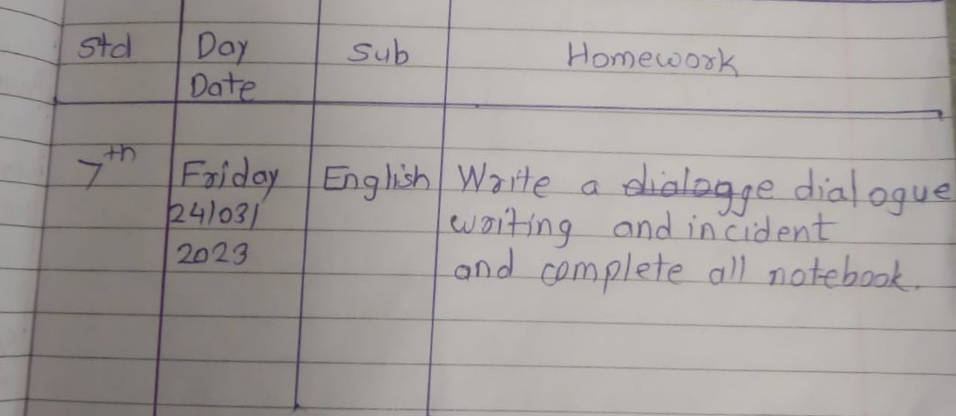 Std Day Sub Homework
Date
7th Friday English Write a dialogge dialogue
24/03/ writing and incident
2023 and complete all notebook.